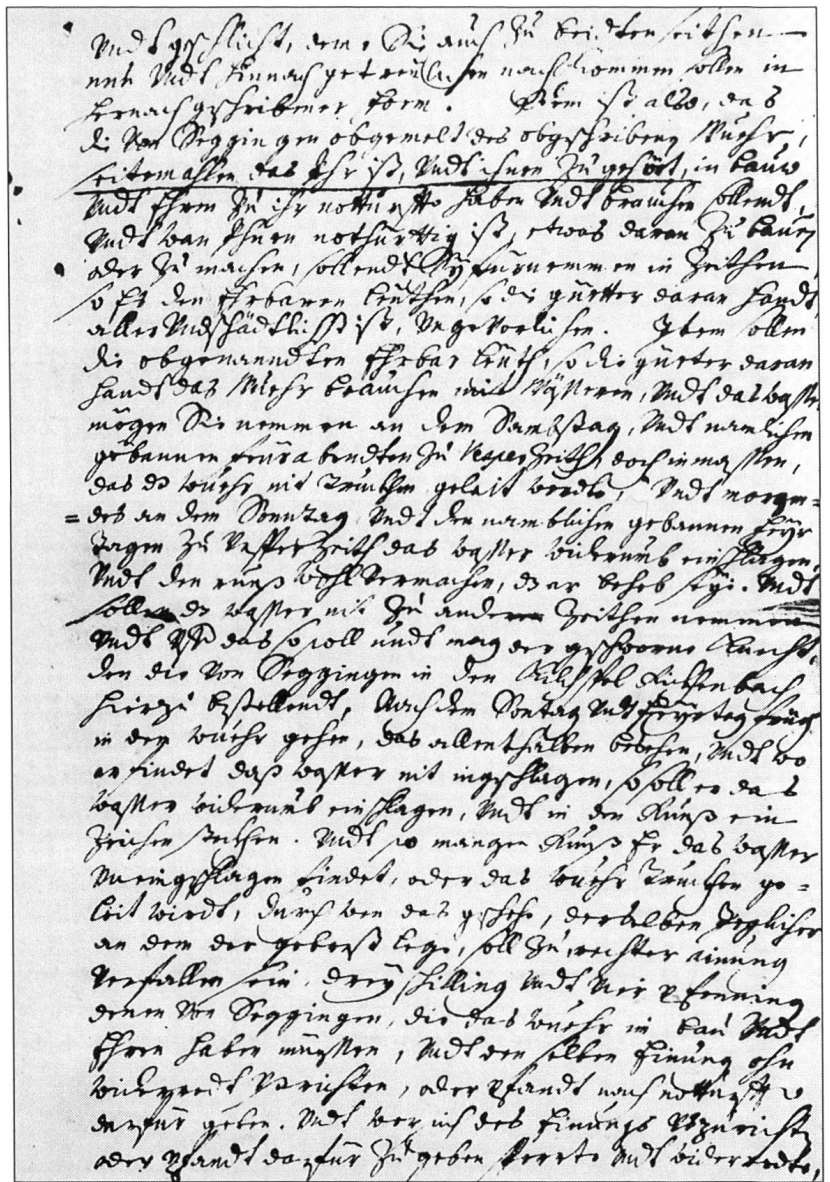 Undt gschlicht, deme Sie auch zu beidten seithen
nun Undt hinnach getreulichen nachkommen sollen in
hernach gschribner form. Dem ist also, das
die Von Seggingen obgemelt des obgschriben Wuehr,
seitemahlen das Ihr ist, Undt ihnen zu gehört, in bauw
Undt Ehren zu ihr notturfft haben Undt brauchen sollendt,
Undt wan Ihnen nothürfftig ist, etwas daran zu bauen
oder zu machen, sollendt Sy fürnemmen in Zeithen
so Es den Ehrbaren leüthen, so die güetter daran handt
aller Unschädtlichst ist, Ungevorlichen. Item sollen
die obgenanndten Ehrbar leüth, so die güeter daran
handt das Wuehr brauchen mit Wässeren, Undt das wasser
mögen Sie nemmen an dem Sambstag, Undt namlichen
gebannen feürabendten zu Vesper Zeith, doch in massen,
das dz wuehr nit Trucken geleit werde, Undt morgen-
=des an dem Sonntag Undt den namblichen gebannen feyr
Tagen zu Vesper Zeith das wasser widerumb einschlagen,
Undt den runß wohl Vermachen, dz er beheb seye. Undt
sollen dz wasser nit zu anderen Zeithen nemmen
Undt Uff das so soll undt mag der gschworne Knecht,
den die Von Seggingen in dem Kilchspel Rickhenbach
hierzu bestellendt, Nach dem Sontag Undt feyrtag früeh
in den wuehr gehen, das allenthalben besehen, Undt wo
er findet daß wasser nit ingschlagen, so soll er das
wasser widerumb einschlagen, Undt in den Runß ein
Zeichen steckhen. Undt so mangen Runß Er das wasser
Uneingschlagen findet, oder das wuehr Truckhen ge=
leit wirdt, durch wen das gschehe, derselben Jeglicher
an dem der gebrest lege, soll zu rechter ainung
Verfallen sein, drey schilling Undt Vier pfenning
denen Von Seggingen, die das wuehr in bau Undt
Ehren haben müessen, Undt den selben Einung ohn
widerredt Ußrichten, oder pfandt nach notturfft
darfür geben. Undt wer sich des Einungs Ußzurichten
oder pfandt darfür zu geben sperrte Undt widerredte,